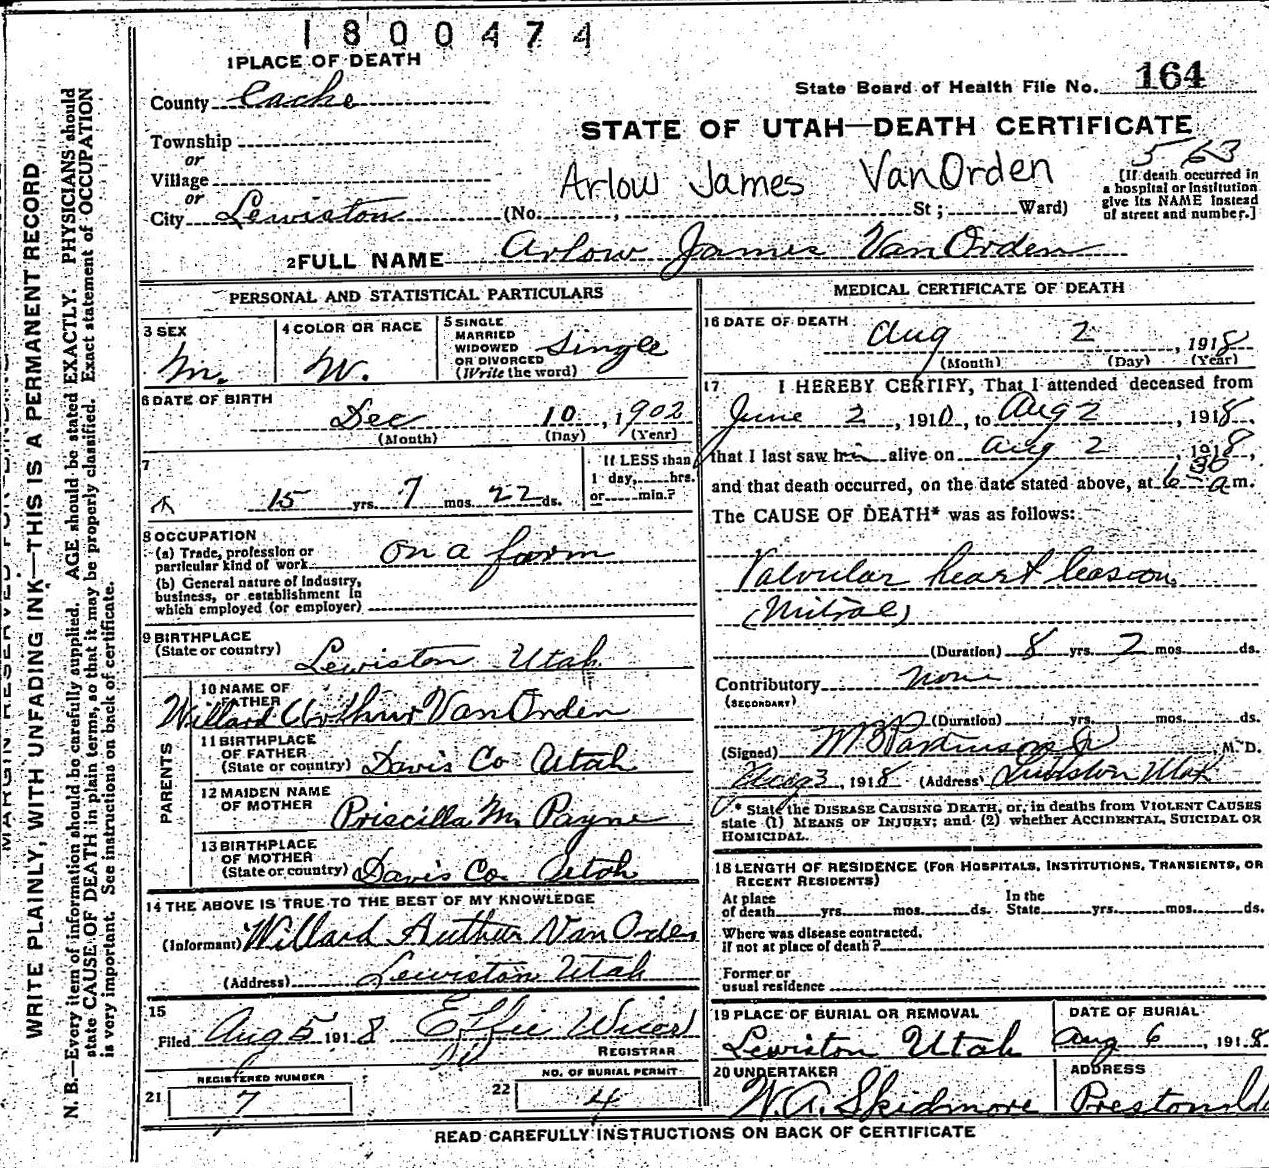 1800474
1 PLACE OF DEATH
County Cache
State Board of Health File No. 164
Township
STATE OF UTAH—DEATH CERTIFICATE
or
Village
or
City Lewiston
Arlow James VanOrden
563
(No. , St; Ward)
[If death occurred in
a hospital or institution
give its NAME instead
of street and number.]
2 FULL NAME Arlow James VanOrden
PERSONAL AND STATISTICAL PARTICULARS
3 SEX
M.
4 COLOR OR RACE
W.
5 SINGLE
MARRIED
WIDOWED
OR DIVORCED
(Write the word)
Single
6 DATE OF BIRTH
Dec 10, 1902
(Month) (Day) (Year)
7
15 yrs. 7 mos. 22 ds.
If LESS than
1 day, hrs.
or min.?
8 OCCUPATION
(a) Trade, profession or
particular kind of work On a farm
(b) General nature of industry,
business, or establishment in
which employed (or employer)
9 BIRTHPLACE
(State or country) Lewiston Utah
PARENTS
10 NAME OF
FATHER
Willard Arthur VanOrden
11 BIRTHPLACE
OF FATHER
(State or country) Davis Co Utah
12 MAIDEN NAME
OF MOTHER
Priscilla M. Payne
13 BIRTHPLACE
OF MOTHER
(State or country) Davis Co. Utah
14 THE ABOVE IS TRUE TO THE BEST OF MY KNOWLEDGE
(Informant) Willard Authur Van Orden
(Address) Lewiston Utah
15
Filed Aug 5 1918 Effie
REGISTRAR
REGISTERED NUMBER
21 7
NO. OF BURIAL PERMIT
22 4
MEDICAL CERTIFICATE OF DEATH
16 DATE OF DEATH
Aug 2, 1918
(Month) (Day) (Year)
17 I HEREBY CERTIFY, That I attended deceased from
June 2, 1910, to Aug 2, 1918,
that I last saw him alive on Aug 2, 1918,
and that death occurred, on the date stated above, at 6 30 a m.
The CAUSE OF DEATH* was as follows:
Valvular heart leasion
(Mitral)
(Duration) 8 yrs. 2 mos. ds.
Contributory None
(SECONDARY)
(Duration) yrs. mos. ds.
(Signed) W B Parkinson Jr M. D.
Aug 3, 1918 (Address) Lewiston Utah
* State the DISEASE CAUSING DEATH, or, in deaths from VIOLENT CAUSES
state (1) MEANS OF INJURY; and (2) whether ACCIDENTAL, SUICIDAL OR
HOMICIDAL.
18 LENGTH OF RESIDENCE (FOR HOSPITALS, INSTITUTIONS, TRANSIENTS, OR
RECENT RESIDENTS)
At place
of death yrs. mos. ds.
In the
State yrs. mos. ds.
Where was disease contracted,
if not at place of death?
Former or
usual residence
19 PLACE OF BURIAL OR REMOVAL
Lewiston Utah
DATE OF BURIAL
Aug 6, 1918
20 UNDERTAKER
W.A. Skidmore
ADDRESS
Preston
READ CAREFULLY INSTRUCTIONS ON BACK OF CERTIFICATE
MARGIN RESERVED FOR BINDING
WRITE PLAINLY, WITH UNFADING INK—THIS IS A PERMANENT RECORD
N. B.—Every item of information should be carefully supplied. AGE should be stated EXACTLY. PHYSICIANS should
state CAUSE OF DEATH in plain terms, so that it may be properly classified. Exact statement of OCCUPATION
is very important. See instructions on back of certificate.